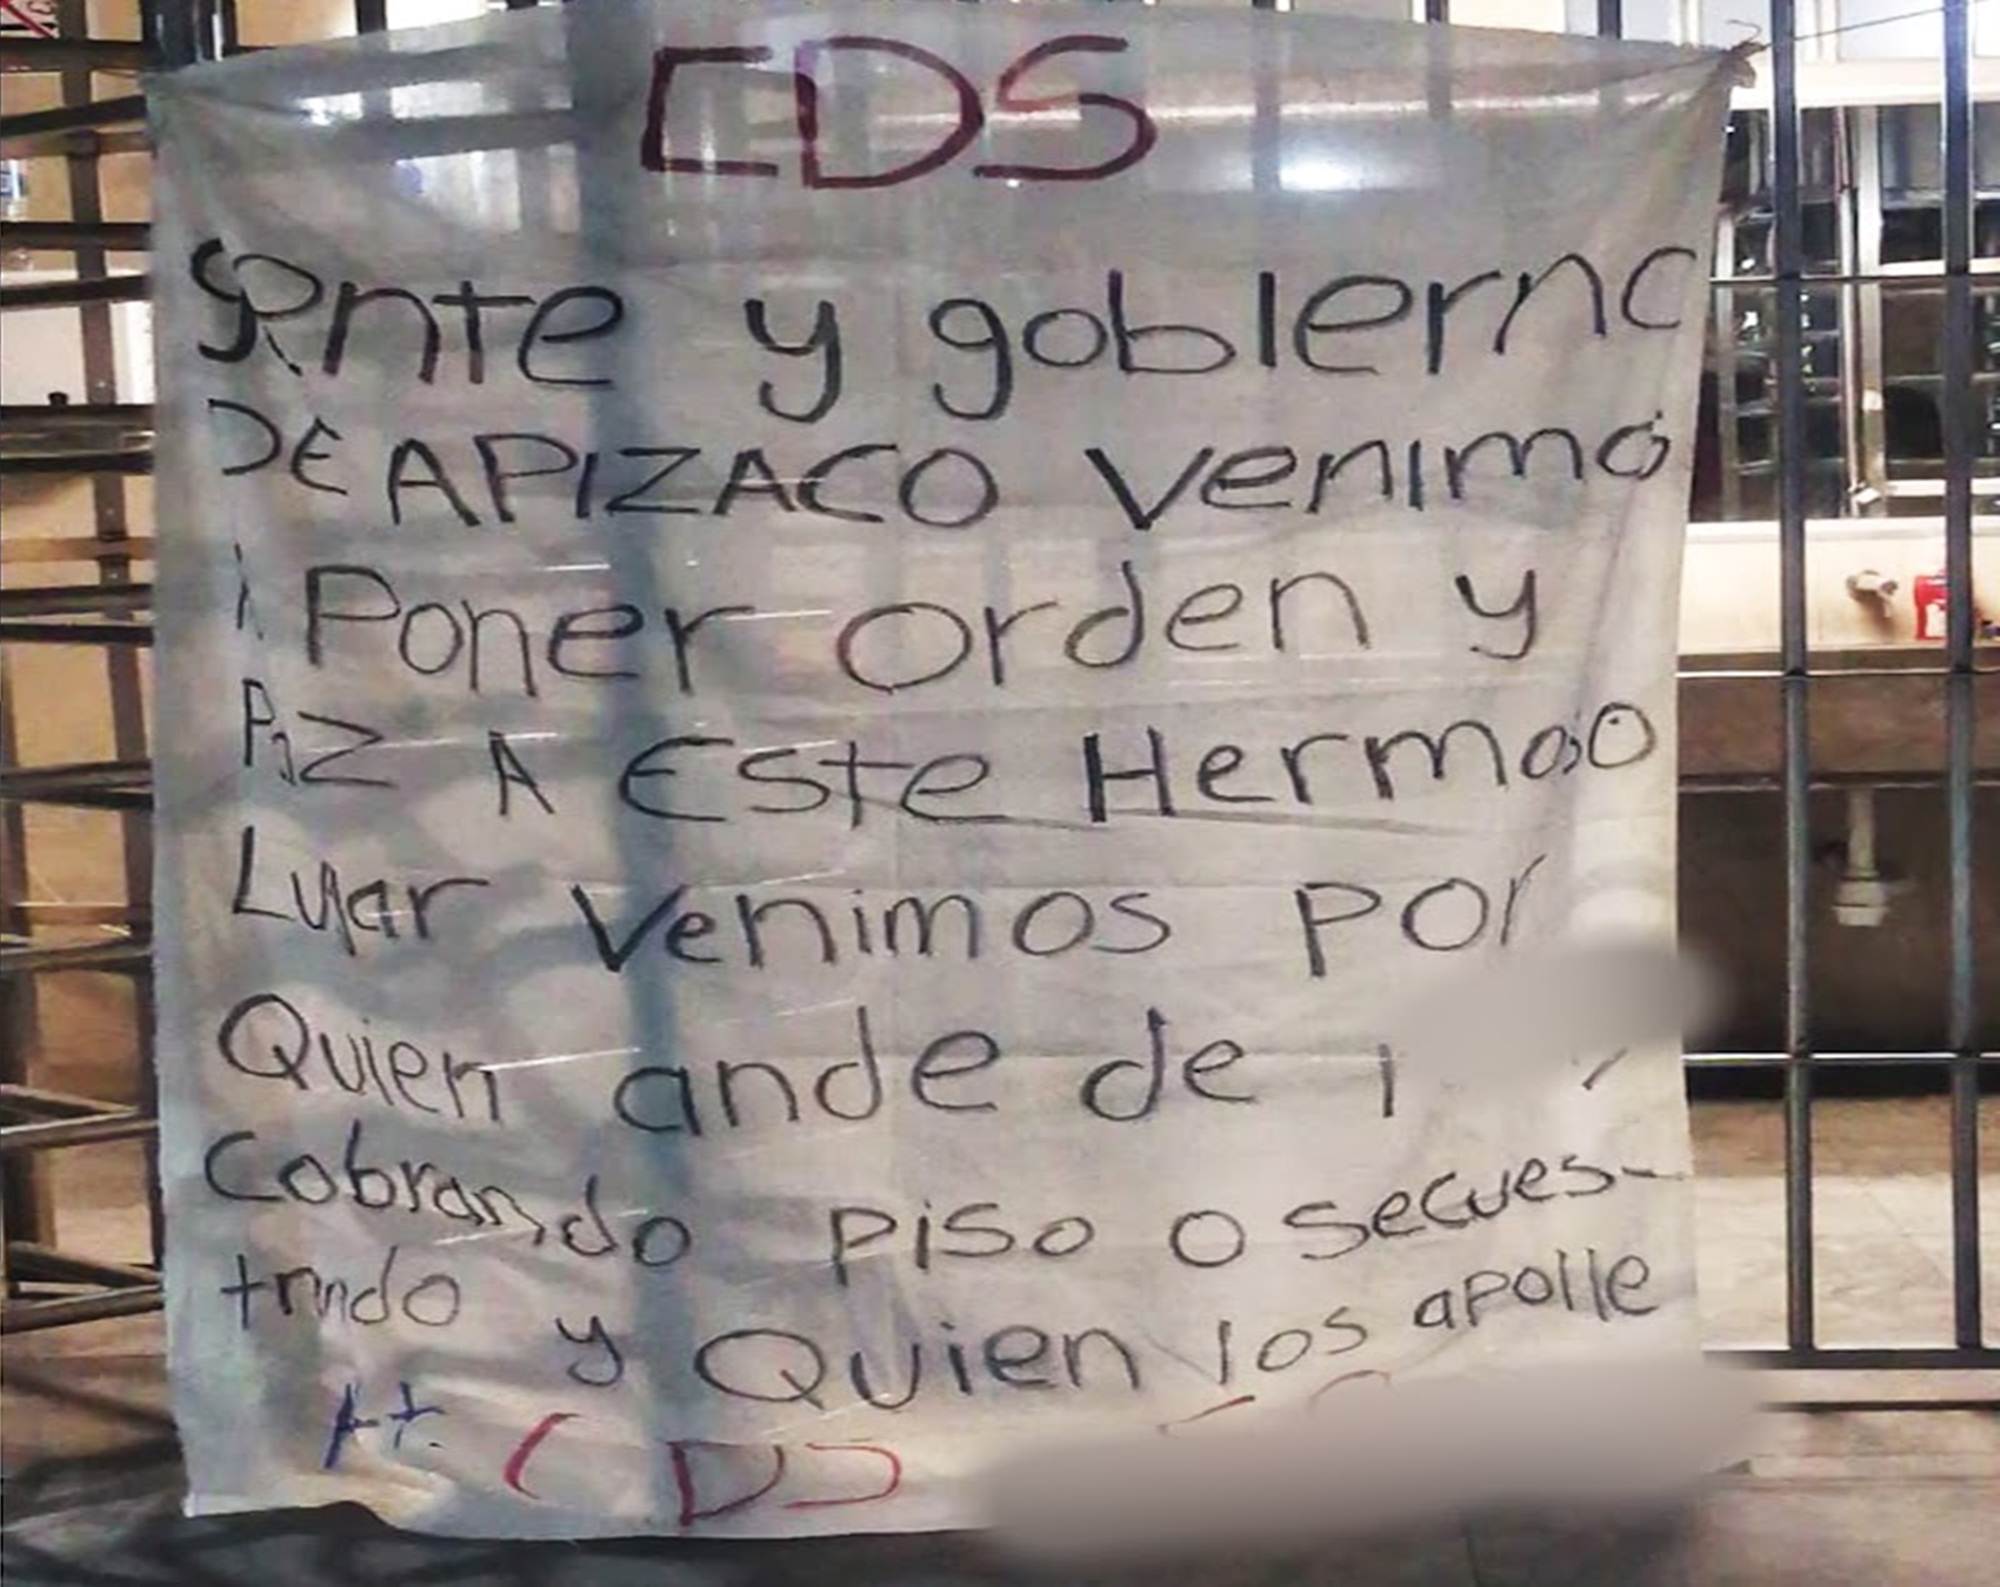 CDS
Gente y gobierno
DE APIZACO venimos
A Poner orden y
PAZ A Este Hermoso
Lugar Venimos Por
Quien ande de
Cobrando Piso o secues-
trando y Quien los apolle
At. CDS